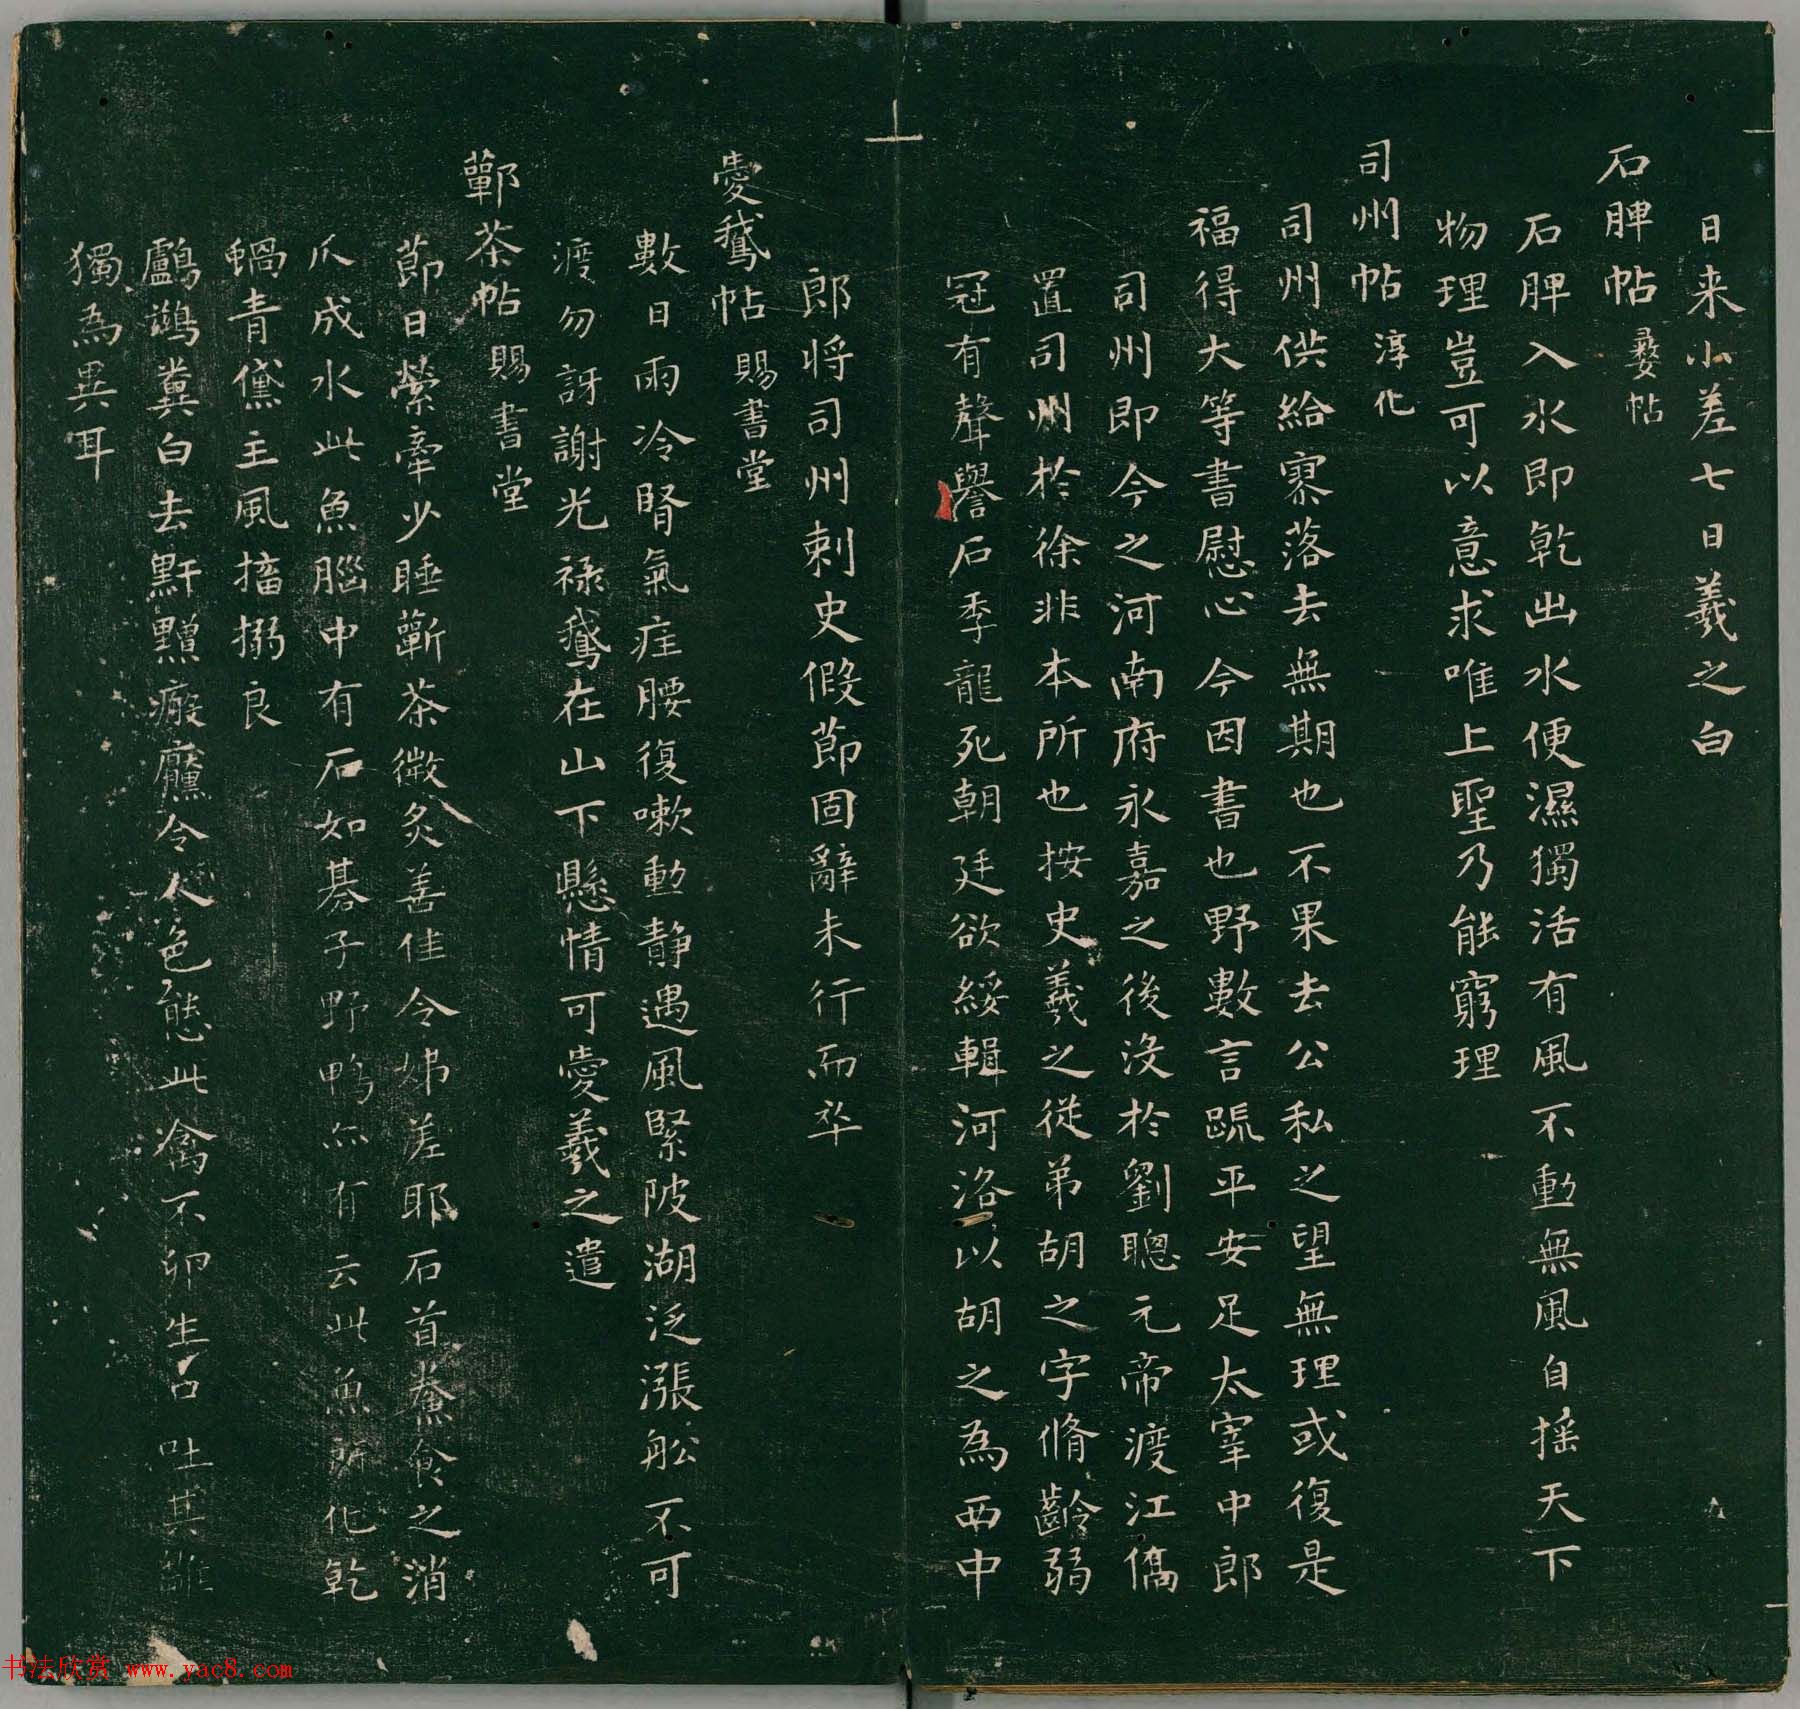 日来小差七日羲之白
石脾帖 彛帖
石脾入水即乾出水便濕獨活有風不動無風自揺天下
物理豈可以意求唯上聖乃能窮理
司州帖 淳化
司州供給寥落去無期也不果去公私之望無理或復是
福得大等書慰心今因書也野數言䟽平安足太宰中郎
司州即今之河南府永嘉之後沒於劉聰元帝渡江僑
置司州於徐非本所也按史羲之從弟胡之字脩齡弱
冠有聲譽石季龍死朝廷欲綏輯河洛以胡之為西中
郎将司州刺史假節固辭未行而卒
愛鵞帖 賜書堂
數日雨冷腎氣疰腰復嗽動靜遇風緊陂湖泛漲舩不可
渡勿訝謝光禄鵞在山下懸情可愛羲之遣
蘄茶帖 賜書堂
節日縈牽少睡蘄茶微炙善佳令姊差耶石首鮝食之消
瓜成水此魚腦中有石如碁子野鴨亦有云此魚所化乾
蝸青黛主風搐搦良
鸕鷀糞白去䵟黯瘢黶令人色態此禽不卵生口吐其雛
獨為異耳
书法欣赏 www.yac8.com